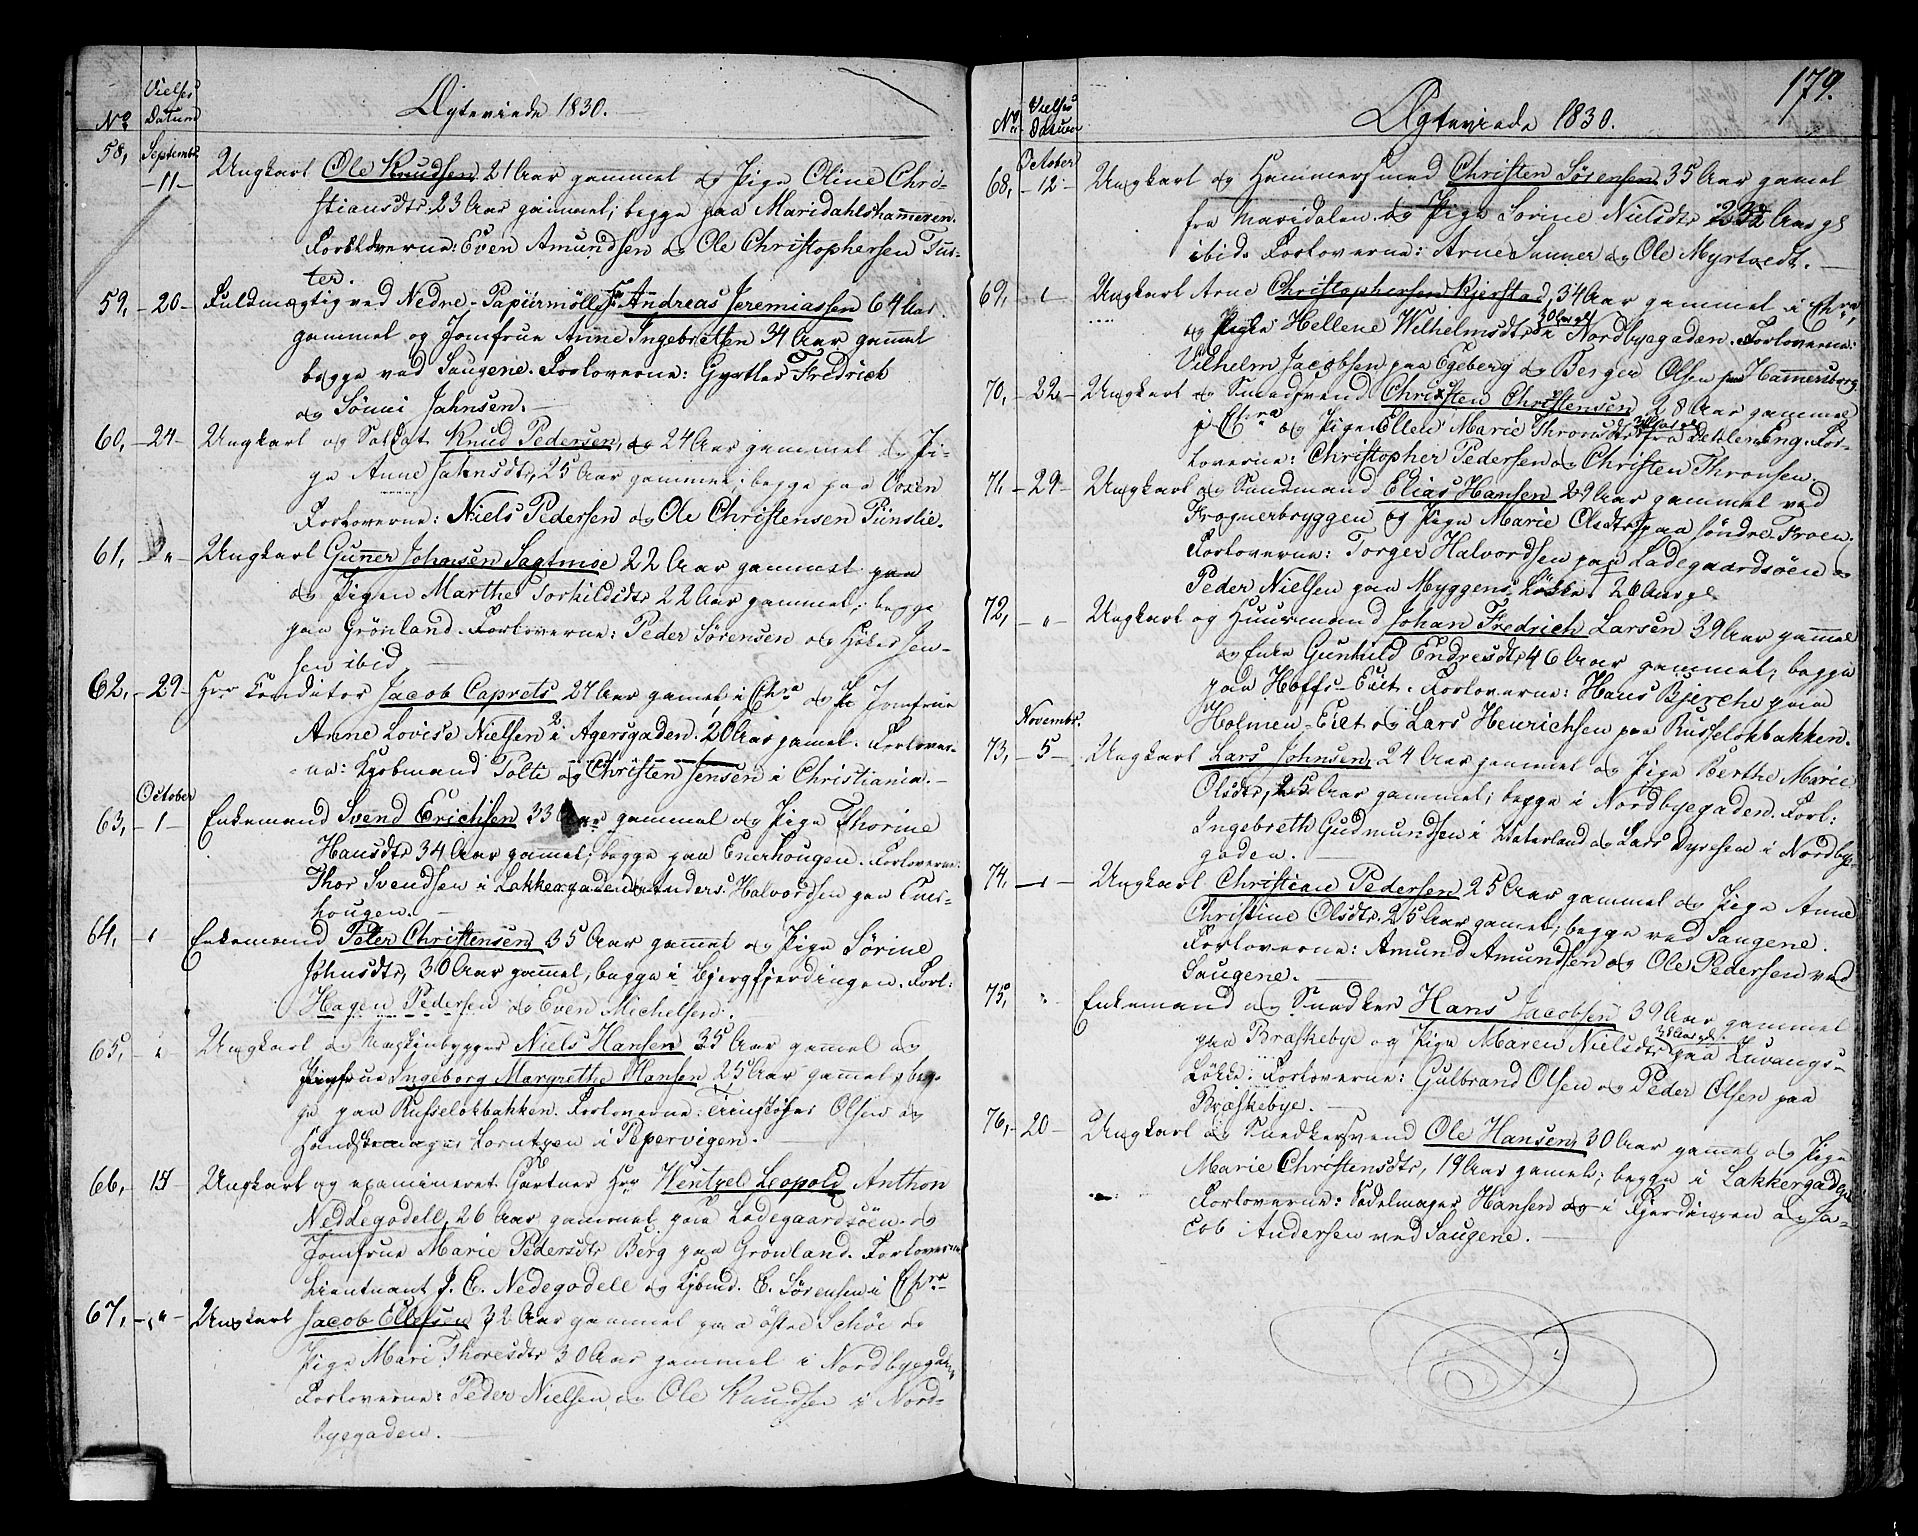 Vielses
No Datum Ægteviede 1830.
58, Septembr
-11- Ungkarl Ole Knudsen 21 Aar gammel og Pige Oline Chri-
stiansdtr. 23 Aar gammel; begge paa Maridahlshammeren.
Forloverne: Even Amundsen og Ole Christophersen Tus-
ter.
59, -20- Fuldmægtig ved Nedre-Papiirmølle Hr Andreas Jeremiassen 64 Aar
gammel og Jomfrue Anne Ingebretsen 34 Aar gammel
begge ved Saugene. Forloverne: Gyrtler Fredrich
og Sønni Jahnsen.
60, -24- Ungkarl og Soldat Knud Pedersen, og 24 Aar gammel og Pi-
ge Anne Jahnsdtr, 25 Aar gammel; begge paa Oosen
Forloverne: Niels Pedersen og Ole Christensen Pünslie.
61, Ungkarl Gunner Johnsen Sagtmoe 22 Aar gammel paa
og Pigen Marthe Torkildsdtr 22 Aar gammel; begge
paa Grönland. Forloverne: Peder Sörensen og Höker Jen-
sen ibid.
62, -29- Hrr Conditor Jacob Caprets 27 Aar gamel i Chra og Jomfrue
Anne Lovise Nielsen i Agersgaden. 20 Aar gamel. Forlover-
ne: Kjøbmand Tolte og Christen Jensen i Christiania.-
October
63, -1- Enkemand Svend Erichsen 33 Aar gammel og Pige Thorine
Hansdtr 34 Aar gamel; begge paa Enerhougen. Forloverne:
Thor Svendsen i Lakkergaden og Anders Halvordsen paa Ener-
hougen.-
64, " Enkemand Peter Christensen 35 Aar gammel og Pige Sörine
Johnsdtr, 30 Aar gammel, begge i Bjergfjerdingen. Forl:
Hagen Pedersen og Even Michelsen.
65, " Ungkarl og Maskinbygger Niels Hansen 35 Aar gammel og
Jomfrue Ingeborg Margrethe Hansen 25 Aar gammel, beg-
ge paa Russelökbakken. Forloverne: Olsen og
Handskemager Lorntzen i Pepervigen.
66, 15 Ungkarl og examineret Gartner Hrr Wentzel Leopold Anthon
Neddegodell, 26 Aar gammel paa Ladegaardsöen og
Jomfrue Marie Pedersdtr Berg paa Grönland. Forloverne
Lieutnant J. C. Nedegodell og Kjbmd. E. Sörensen i Chra
67, -"- Ungkarl Jacob Ellefsen 32 Aar gammel paa östre Schöie og
Pige Mari Thoresdtr 30 Aar gammel i Nordbyegaden
Forloverne: Peder Nielsen og Ole Knudsen i Nord-
byegaden.
179.
Vielses
No Datum Ægteviede 1830.
October
68, -12- Ungkarl og Hammersmed Christen Sörensen 35 Aar gamel
fra Maridalen og Pige Sorine Nielsdtr 23 Aar gl
ibid. Forloverne: Arne Sanner og Ole Myrtvedt.
69, " Ungkarl Arne Christophersen Kjerstad, 34 Aar gammel i Chra,
og Pige Hellene Wilhelmsdtr 30 Aar gl i Nordbyegaden. Forloverne:
Vilhelm Jacobsen paa Egeberg og Berger Olsen paa Hammersborg
70, -22- Ungkarl og Smedsvend Christen Christensen 28 Aar gammel
i Chra og Pige Ellen Marie Thronsdtr fra Dehlen Eng. For-
loverne: Christopher Pedersen og Christen Thronsen.
71. -29- Ungkarl og Sandmand Elias Hansen 29 Aar gammel ved
Frognerbryggen og Pige Marie Olsdtr paa Söndre Froen.
Forloverne: Torger Halvordsen paa Ladegaardsöen og
Peder Nielsen paa Myggens Løkke. 26 Aar gl
72, -"- Ungkarl og Huusmand Johan Fredrich Larsen 39 Aar gammel
og Enke Gunhild Endresdtr 46 Aar gammel; begge
paa Hoffs-Eiet. Forloverne: Hans Bjerche paa
Holmen-Eiet og Lars Henrichsen paa Russelökbakken.
Novembr.
73, -5- Ungkarl Lars Johnsen 24 Aar gammel og Pige Berthe Marie
Olsdtr, 25 Aar gammel; begge i Nordbyegaden. Forl:
Ingebreth Gudmundsen i Vaterland og Lars Syvesen i Nordbye-
gaden.
74, -"- Ungkarl Christian Pedersen 25 Aar gammel og Pige Anne
Christine Olsdtr. 25 Aar gamel; begge ved Saugene.
Forloverne: Amund Amundsen og Ole Pedersen ved
Saugene.
75, " Enkemand og Snedker Hans Jacobsen 39 Aar gammel
paa Braskebye og Pige Maren Nielsdtr 38 Aar gl. paa
Lökke. Forloverne: Gulbrand Olsen og Peder Olsen paa
Bræskebye.
76, -20- Ungkarl og Snedkersvend Ole Hansen 30 Aar gammel og Pige
Marie Christensdtr, 19 Aar gamel; begge i Lakkergaden
Forloverne: Sadelmager Hansen og i Fjerdingen og Ja-
cob Andersen ved Saugene.